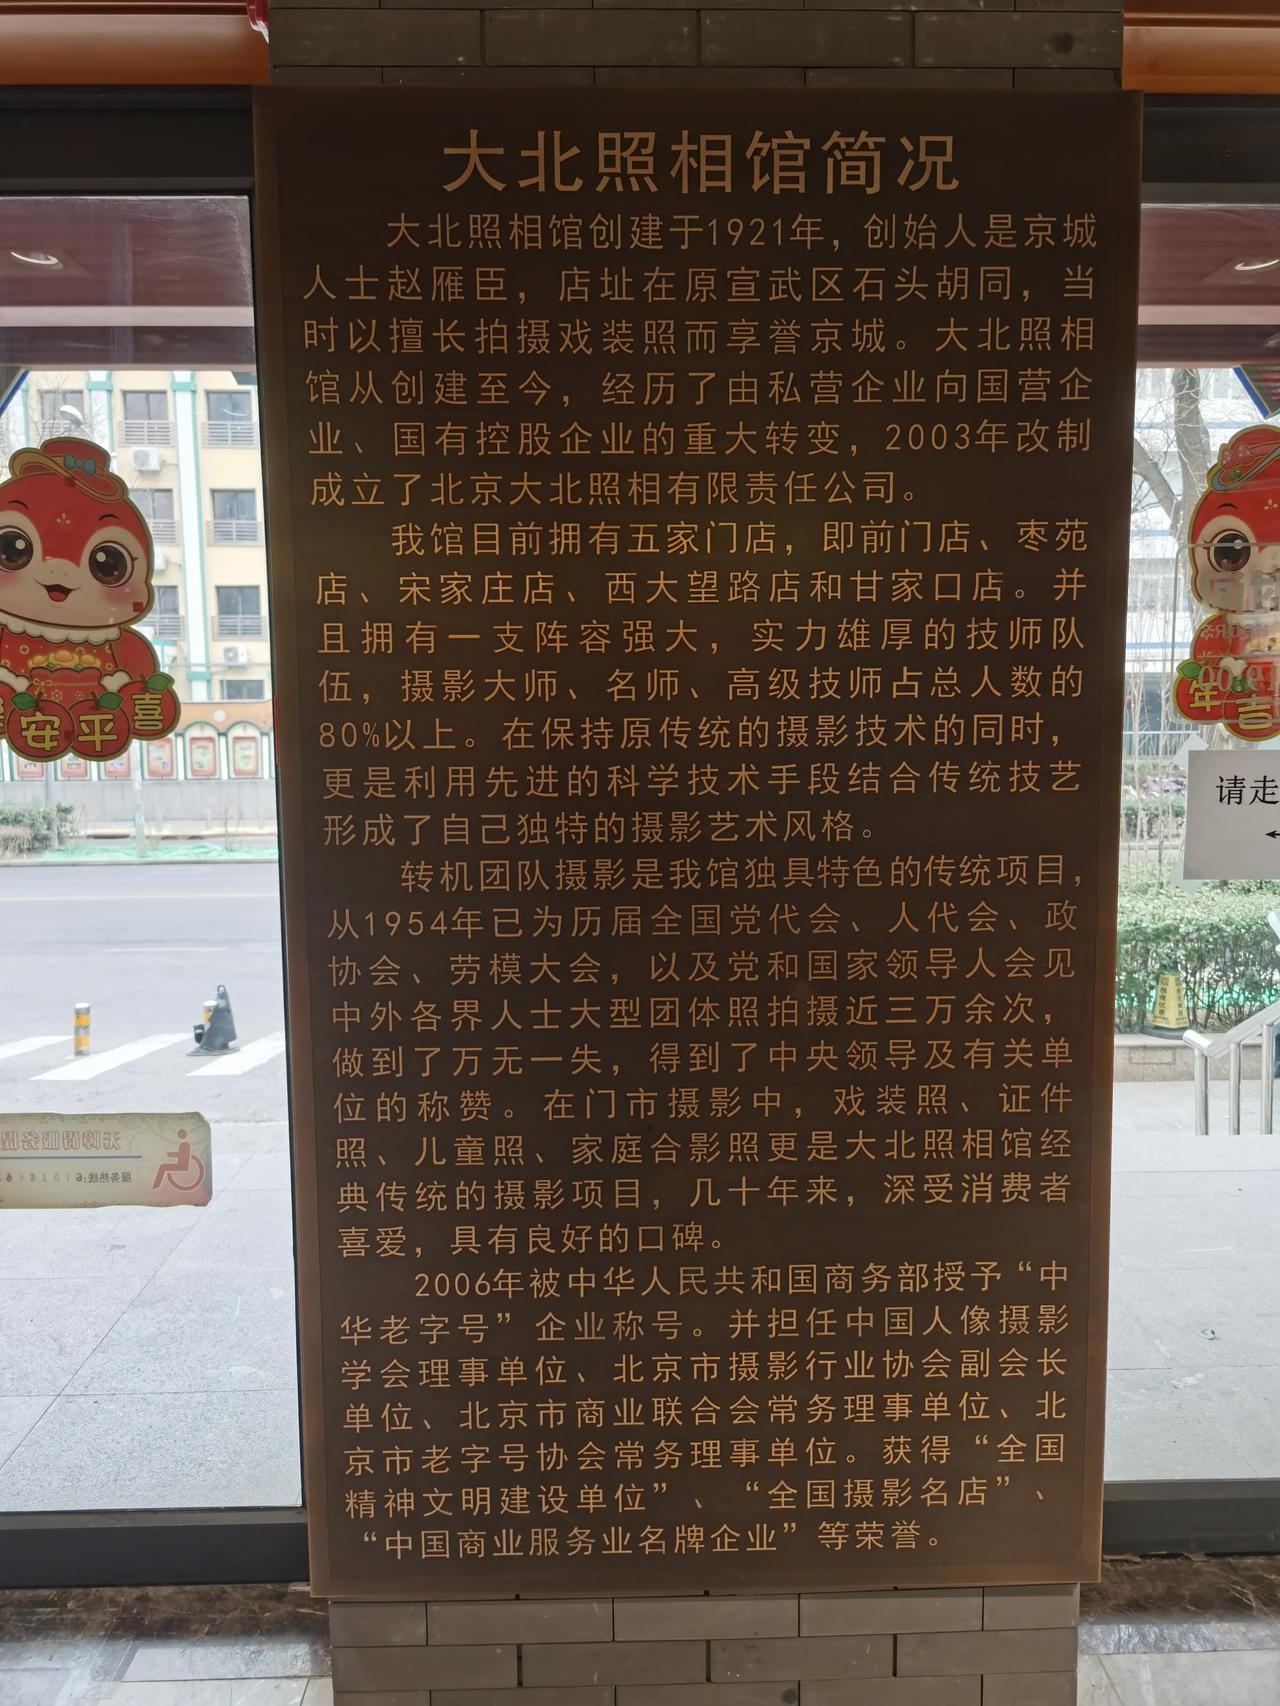 大北照相馆简况
大北照相馆创建于1921年，创始人是京城
人士赵雁臣，店址在原宣武区石头胡同，当
时以擅长拍摄戏装照而享誉京城。大北照相
馆从创建至今，经历了由私营企业向国营企
业、国有控股企业的重大转变，2003年改制
成立了北京大北照相有限责任公司。
我馆目前拥有五家门店，即前门店、枣苑
店、宋家庄店、西大望路店和甘家口店。并
且拥有一支阵容强大，实力雄厚的技师队
伍，摄影大师、名师、高级技师占总人数的
80%以上。在保持原传统的摄影技术的同时，
更是利用先进的科学技术手段结合传统技艺
形成了自己独特的摄影艺术风格。
转机团队摄影是我馆独具特色的传统项目，
从1954年已为历届全国党代会、人代会、政
协会、劳模大会，以及党和国家领导人会见
中外各界人士大型团体照拍摄近三万余次，
做到了万无一失，得到了中央领导及有关单
位的称赞。在门市摄影中，戏装照、证件
照、儿童照、家庭合影照更是大北照相馆经
典传统的摄影项目，几十年来，深受消费者
喜爱，具有良好的口碑。
2006年被中华人民共和国商务部授予“中
华老字号”企业称号。并担任中国人像摄影
学会理事单位、北京市摄影行业协会副会长
单位、北京市商业联合会常务理事单位、北
京市老字号协会常务理事单位。获得“全国
精神文明建设单位”、“全国摄影名店”、
“中国商业服务业名牌企业”等荣誉。
安平喜
年
请走
服务热线: